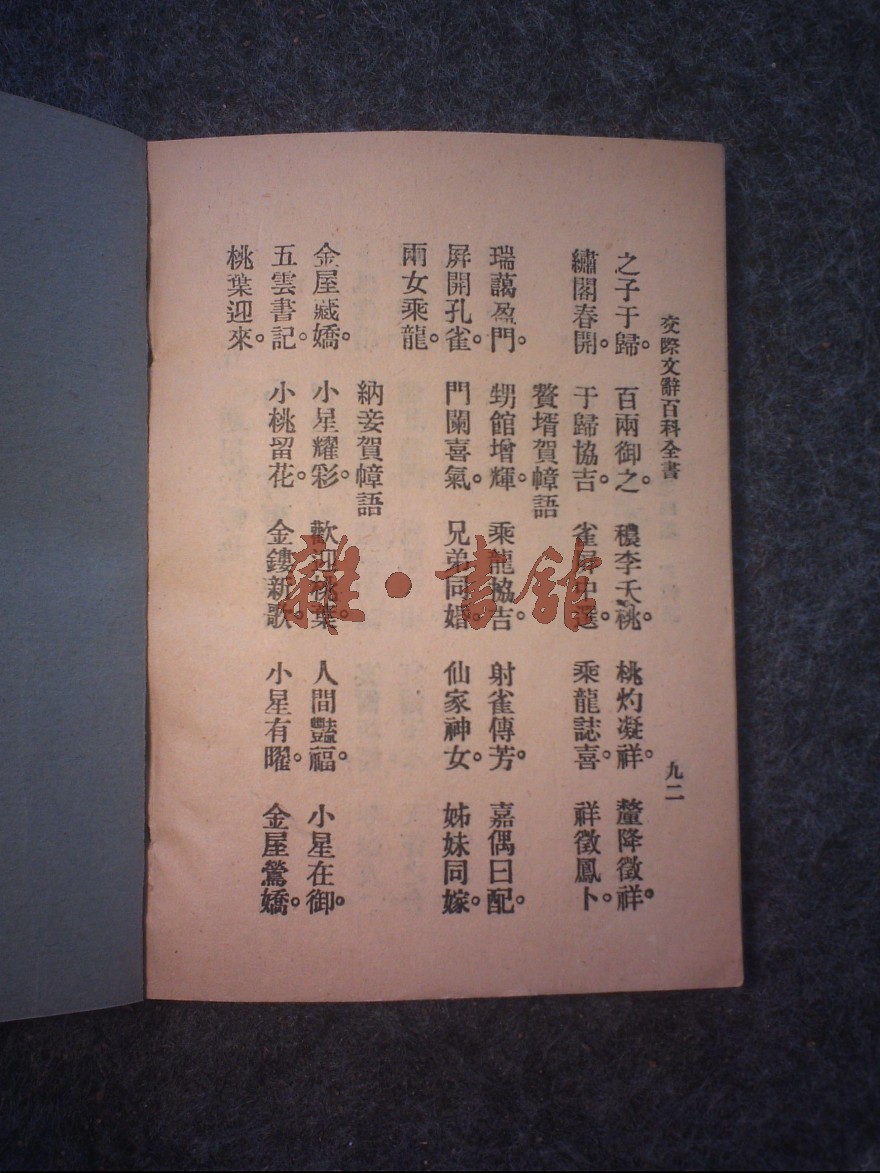 交際文辭百科全書 九二
之子于歸。 百兩御之。 穠李夭桃。 桃灼凝祥。 釐降徵祥。
繡閣春開。 于歸協吉。 雀屏中選。 乘龍誌喜。 祥徵鳳卜。
贅壻賀幛語
瑞藹盈門。 甥館增輝。 乘龍協吉。 射雀傳芳。 嘉偶曰配。
屛開孔雀。 門闌喜氣。 兄弟同婚。 仙家神女。 姊妹同嫁。
兩女乘龍。
納妾賀幛語
金屋藏嬌。 小星耀彩。 歡迎桃葉。 人間豔福。 小星在御。
五雲書記。 小桃留花。 金鏤新歌。 小星有曜。 金屋鶯嬌。
桃葉迎來。
雜·書館